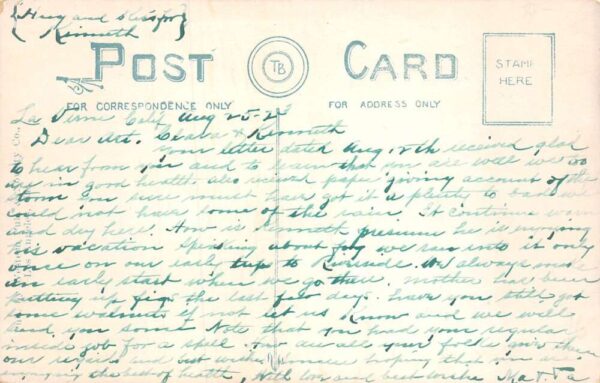 {Hug and Kiss for
Kenneth}
POST CARD
TB
STAMP
HERE
FOR CORRESPONDENCE ONLY
FOR ADDRESS ONLY
La Verne Calif Aug 25-23
Dear Art. Clara & Kenneth
your letter dated Aug. 12th received glad
to hear from you and to learn that you are well we too
are in good health. also received paper giving account of the
storm you sure must have got it a plenty to bad we
could not have some of the rain. It continues warm
and dry here. How is Kenneth presume he is enjoying
his vacation Speaking about fog we ran into it only
once on our early trip to Riverside. We always made
an early start when we go there. Mother has been
putting up figs the last few days. have you still got
some if not let us know and we will
send you some Note that you had your regular
inside job for a spell. are all your folks give them
our regards and best wishes hoping that you are
enjoying the best of health, With love and best wishes Ma & Pa